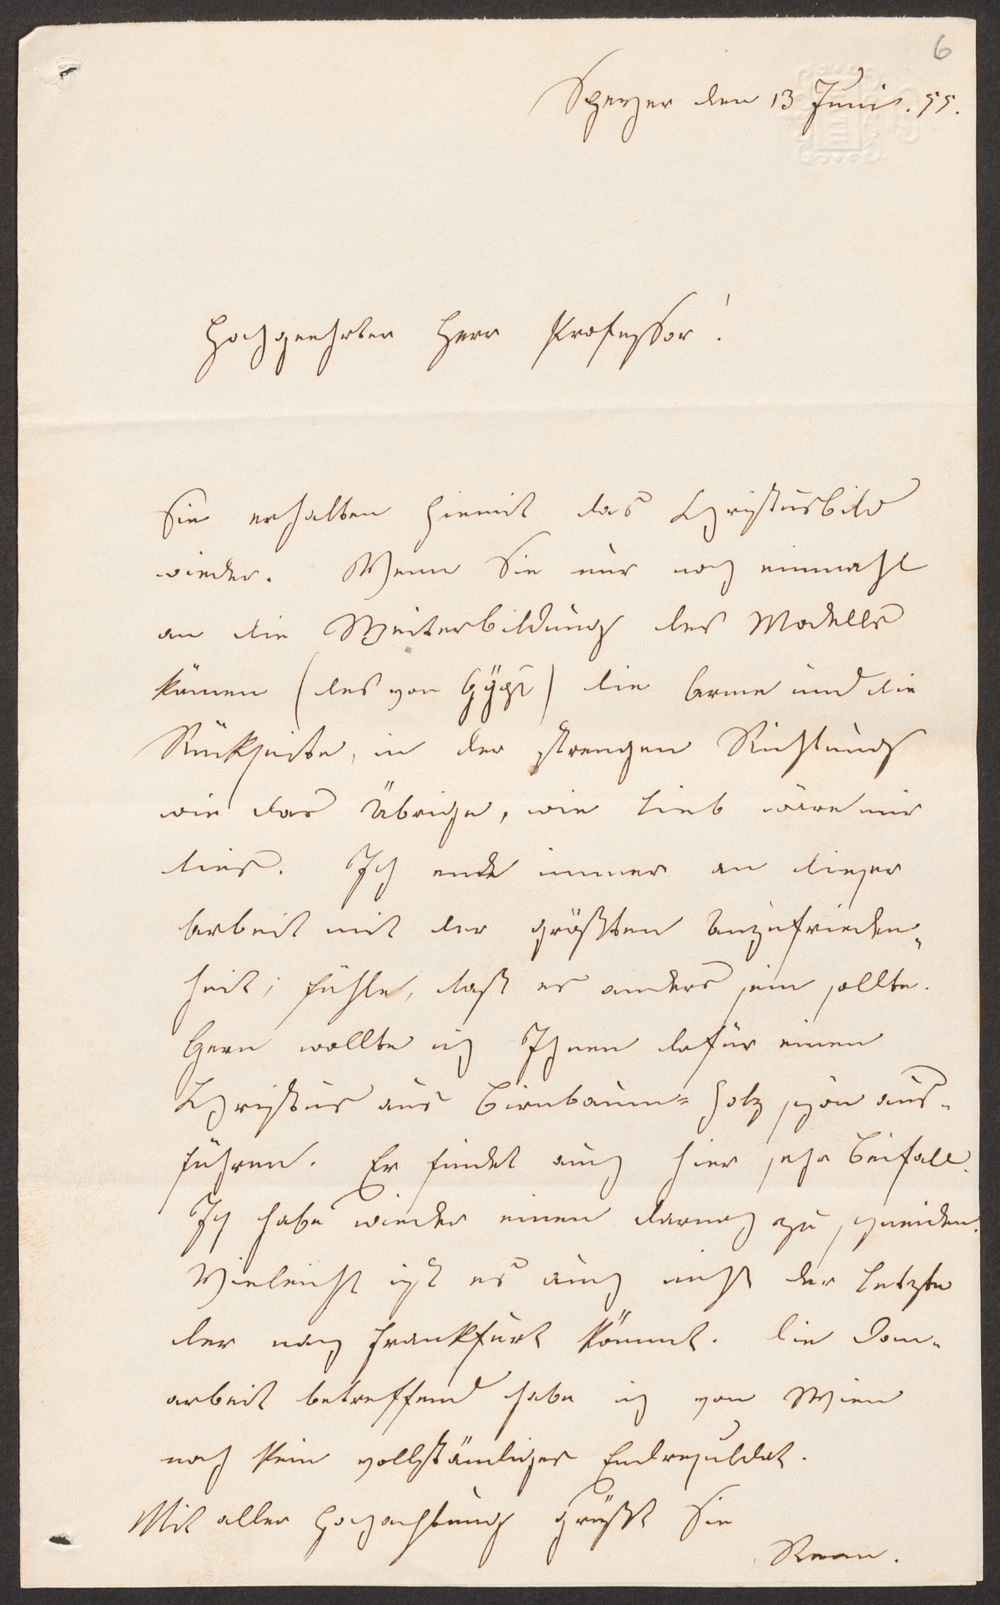 6
Speyer den 13 Juni. 55.
Hochgeehrter Herr Professor!
Sie erhalten hiemit das Christusbild
wieder. Wenn Sie nur noch einmahl
an die Weiterbildung des Modells
kämen (des von Gyps) die Arme und die
Rückseite, in der strengen Richtung
wie das Übrige, wie lieb wäre mir
dies. Ich ende immer an dieser
Arbeit mit der größten Unzufrieden-
heit; fühle, daß es anders sein sollte.
Gern wollte ich Ihnen dafür einen
Christus aus Birnbaum-Holz schön aus-
führen. Er findet auch hier sehr Beifall.
Ich habe wieder einen darnach zu schneiden.
Vieleicht ist es auch nicht der letzte
der nach Frankfurt kömmt. Die Dom-
arbeit betreffend habe ich von Wien
noch kein vollständiges Endresuldat.
Mit aller Hochachtung grüßt Sie